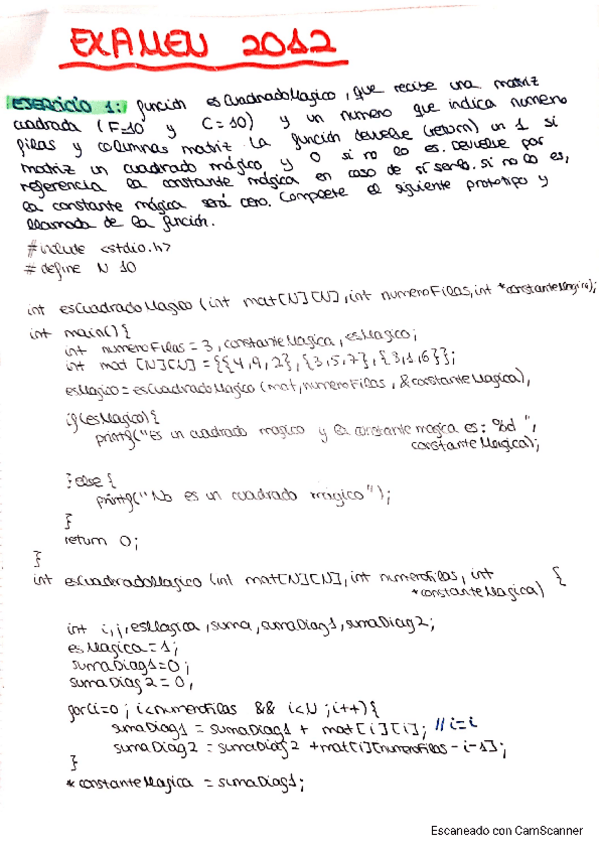 EXAMEN 2012
EJERCICIO 1: función esCuadradoMagico, que recibe una matriz
cuadrada (F=10 y C=10) y un numero que indica numero
filas y columnas matriz. La función devuelve (return) un 1 si
matriz un cuadrado mágico y 0 si no lo es. Devuelve por
referencia la constante mágica en caso de sí serlo. si no lo es,
la constante mágica será cero. Complete el siguiente prototipo y
llamada de la función.
#include <stdio.h>
#define N 10
int esCuadradoMagico (int mat[N][N], int numeroFilas, int *constanteMagica);
int main(){
int numeroFilas = 3, constanteMagica, esMagico;
int mat [N][N] = {{4,9,2}, {3,5,7}, {3,1,6}};
esMagico = esCuadradoMagico (mat, numeroFilas, &constanteMagica),
if(esMagico){
printf("Es un cuadrado magico y la constante magica es: %d ",
constanteMagica);
}else{
printf("No es un cuadrado mágico");
}
return 0;
}
int esCuadradoMagico (int mat[N][N], int numeroFilas, int {
*constanteMagica)
int i, j, esMagica, suma, sumaDiag1, sumaDiag2;
esMagica = 1;
sumaDiag1=0;
sumaDiag2 = 0,
for(i=0; i<numeroFilas && i<N ;i++){
sumaDiag1 = sumaDiag1 + mat[i][i]; //i=i
sumaDiag2 = sumaDiag2 +mat[i][numeroFilas-i-1];
}
*constanteMagica = sumaDiag1;
Escaneado con CamScanner